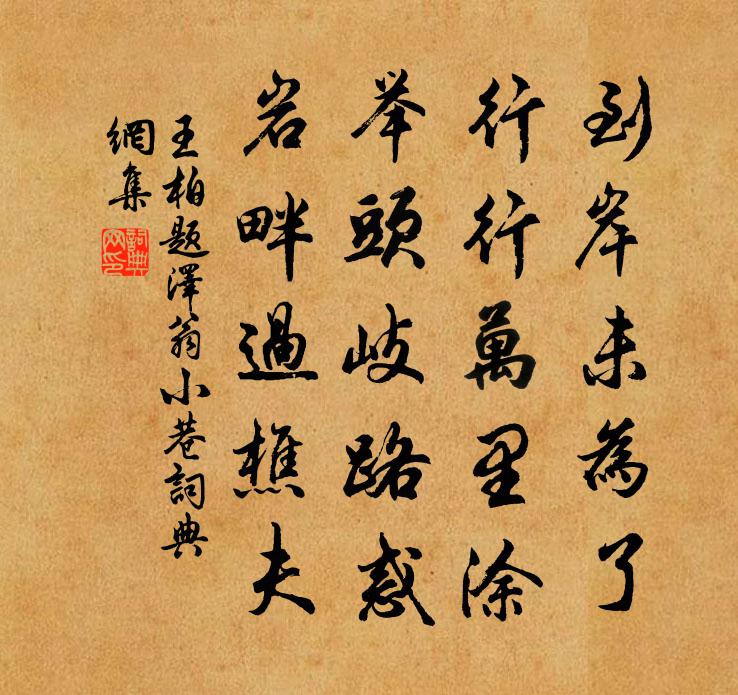 到岸未為了
行行萬里涂
举頭岐路惑
岩畔過樵夫
王柏题澤翁小巷詞典
網集
詞典网印